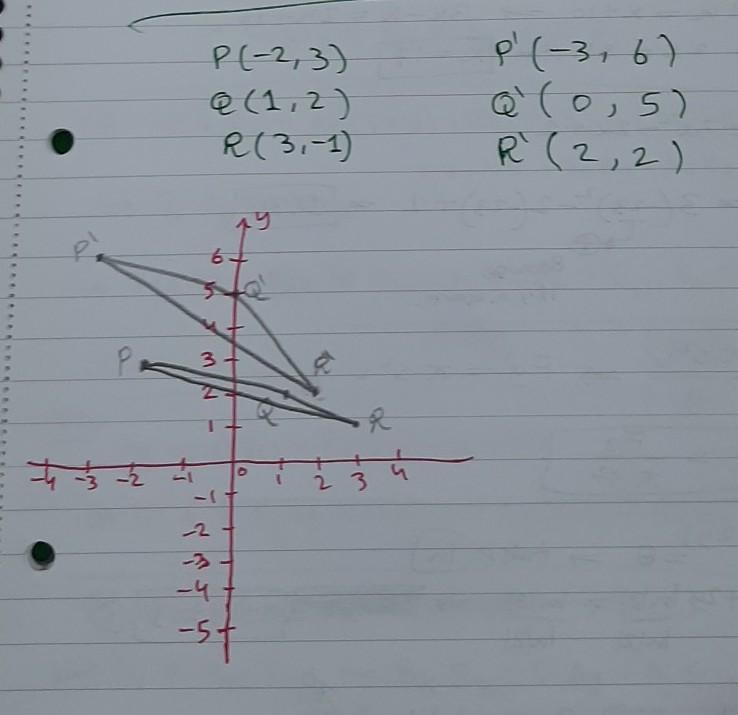 P(-2, 3) P'(-3, 6)
Q(1, 2) Q'(0, 5)
R(3, -1) R'(2, 2)
y
P'
6
5 Q'
4
P 3 R'
2
Q R
1
-4 -3 -2 -1 0 1 2 3 4
-1
-2
-3
-4
-5